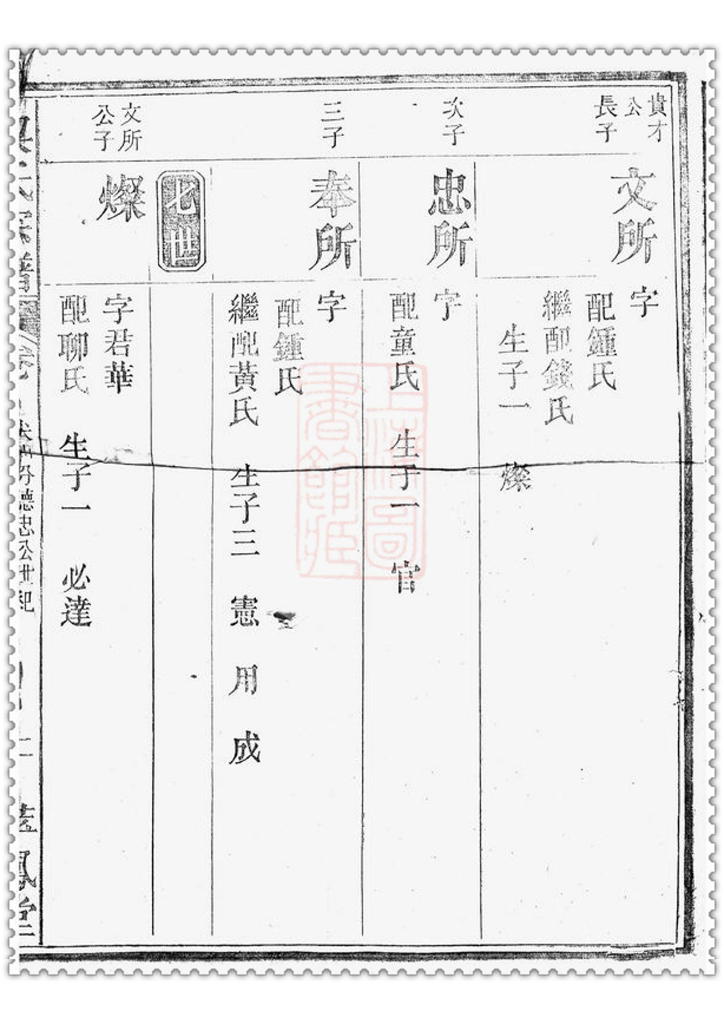 貴才
公
長子
文所
字
配鍾氏
繼配錢氏
生子一 燦
次子
忠所
字
配童氏 生子一 官
三子
奉所
字
配鍾氏
繼配黃氏 生子三 憲 用 成
七世
文所
公子
燦
字君華
配聊氏 生子一 必達
德忠公世紀
上海圖
書館藏